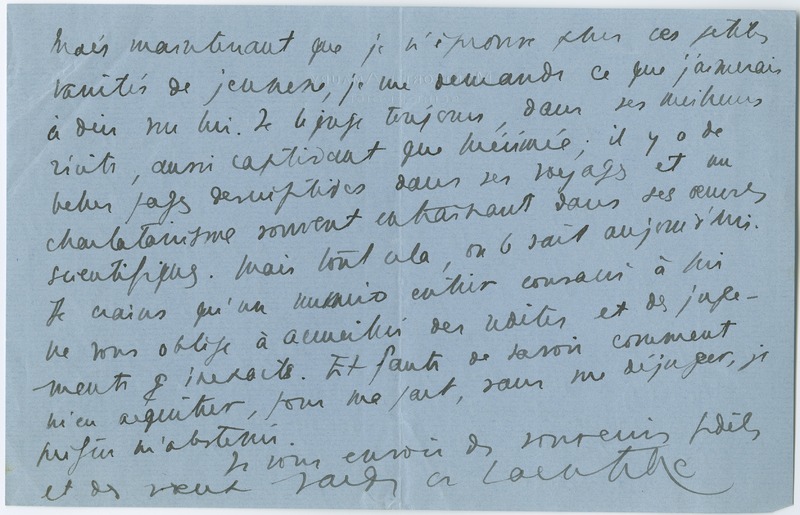 Mais maintenant que je n'éprouve plus ces petites
vanités de jeunesse, je me demande ce que j'aimerais
à dire sur lui. Je le juge toujours, dans ses meilleurs
récits, aussi captivant que Mérimée; il y a de
belles pages descriptives dans ses voyages et un
charlatanisme souvent entraînant dans ses œuvres
scientifiques. Mais tout cela, on le sait aujourd'hui.
Je crains qu'un numéro entier consacré à lui
ne vous oblige à accueillir des redites et des juge-
ments inexacts. Et faute de savoir comment
m'en acquitter, pour ma part, sans me déjuger, je
préfère m'abstenir.
Je vous envoie des souvenirs fidèles
et des vœux